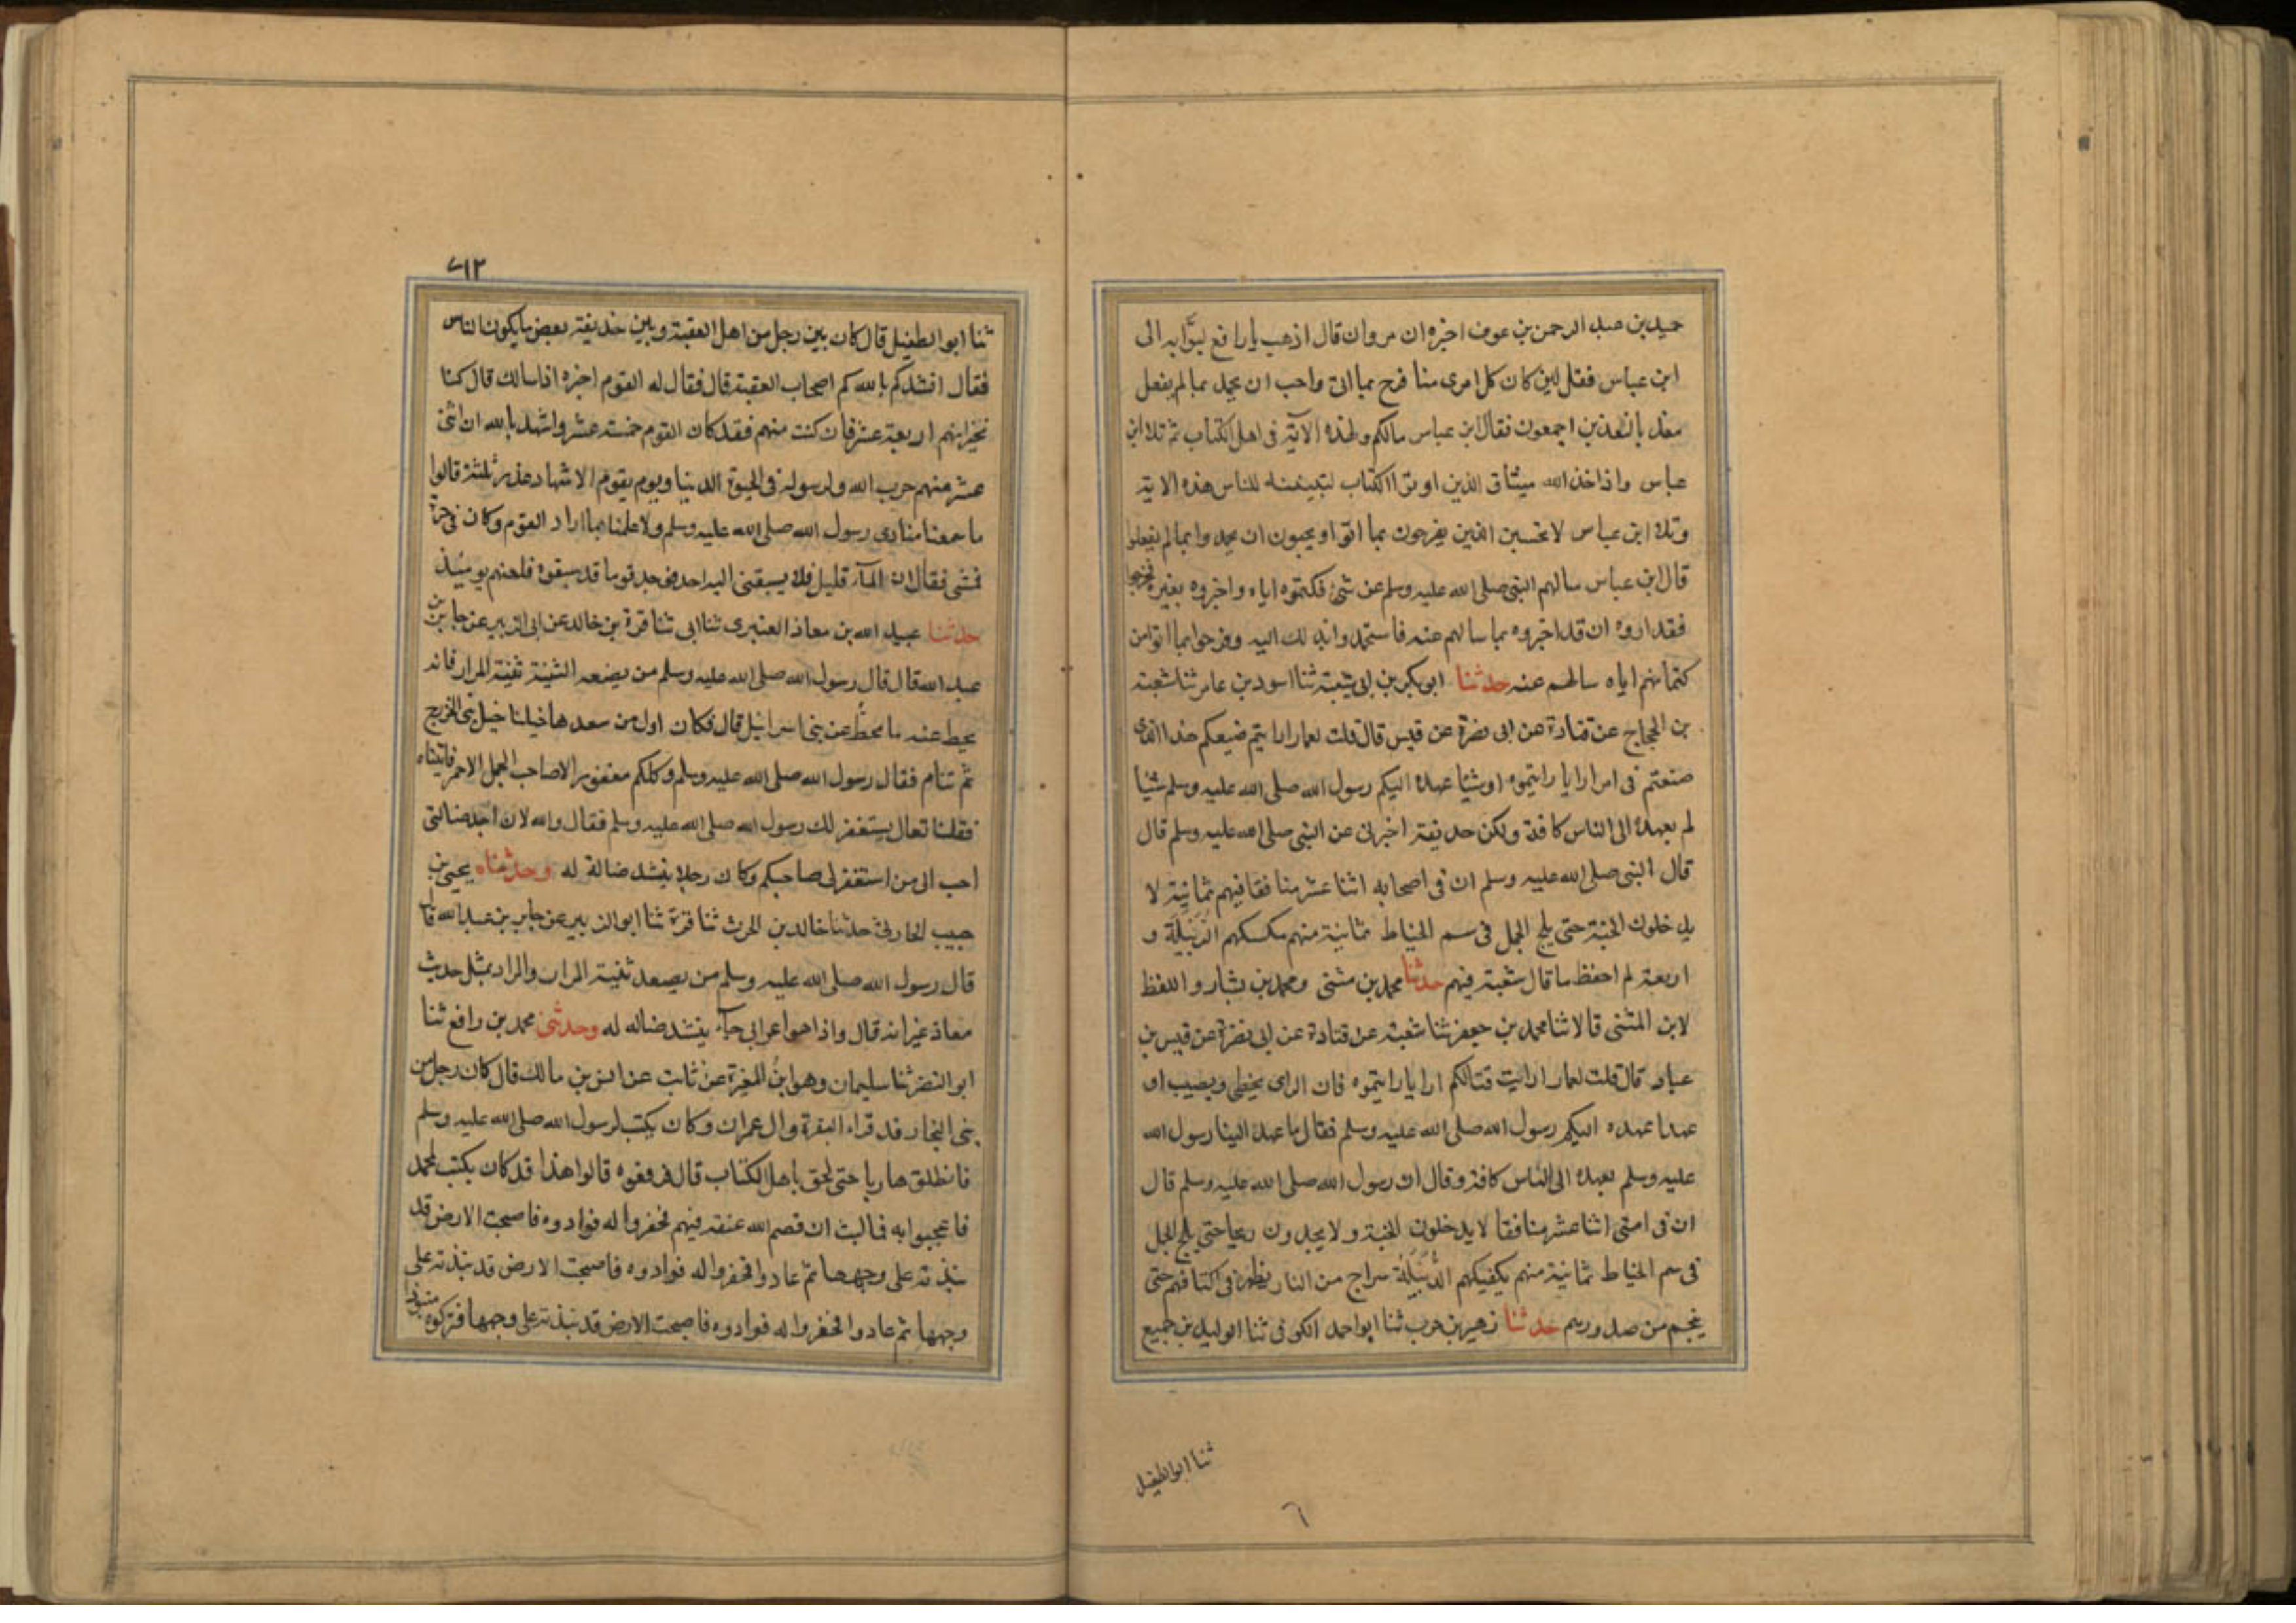 حميد بن عبد الرحمن بن عوف اخبره ان مروان قال اذهب يا رافع لبوابه الى
ابن عباس فقل لين كان كل امرى منا فرح بما اتى واحب ان يحمد بما لم يفعل
معذبا لنعذبن اجمعون فقال ابن عباس مالكم ولهذه الآية فى اهل الكتاب ثم تلا ابن
عباس واذ اخذ الله ميثاق الذين اوتوا الكتاب لتبيننه للناس هذه الاية
وتلا ابن عباس لا تحسبن الذين يفرحون بما اتوا ويحبون ان يحمدوا بما لم يفعلوا
قال ابن عباس سالهم النبى صلى الله عليه وسلم عن شئ فكتموه اياه واخبروه بغيره فخرجوا
فقد اروه ان قد اخبروه بما سالهم عنه فاستحمدوا بذلك اليه وفرحوا بما اتوا من
كتمانهم اياه سالهم عنه حدثنا ابو بكر بن ابى شيبة ثنا اسود بن عامر ثنا شعبة
بن الحجاج عن قتادة عن ابى نضرة عن قيس قال قلت لعمار ارايتم صنيعكم هذا الذى
صنعتم فى امر ارايا رايتموه او شيئا عهده اليكم رسول الله صلى الله عليه وسلم شيئا
لم يعهده الى الناس كافة ولكن حذيفة اخبرنى عن النبى صلى الله عليه وسلم قال
قال النبى صلى الله عليه وسلم ان فى اصحابه اثنا عشر منافقا فيهم ثمانية لا
يدخلون الجنة حتى يلج الجمل فى سم الخياط ثمانية منهم الدبيلة و
اربعة لم احفظ ما قال شعبة فيهم حدثنا محمد بن مثنى ومحمد بن بشار واللفظ
لابن المثنى قالا ثنا محمد بن جعفر ثنا شعبة عن قتادة عن ابى نضرة عن قيس بن
عباد قال قلت لعمار ارايت قتالكم ارايا رايتموه فان الراى يخطى ويصيب او
عهدا عهده اليكم رسول الله صلى الله عليه وسلم فقال ما عهد الينا رسول الله
عليه وسلم يعهده الى الناس كافة وقال ان رسول الله صلى الله عليه وسلم قال
ان فى امتى اثنا عشر منافقا لا يدخلون الجنة ولا يجدون ريحا حتى يلج الجمل
فى سم الخياط ثمانية منهم يكفيكهم الدبيلة سراج من النار يظهر فى اكتافهم حتى
ينجم من صدورهم حدثنا زهير بن حرب ثنا ابو احمد الكوفى ثنا الوليد بن جميع
ثنا ابو الطفيل
٦
٧١٢
ثنا ابو الطفيل قال كان بين رجل من اهل العقبة وبين حذيفة بعض ما يكون الناس
فقال انشدكم بالله كم اصحاب العقبة قال فقال له القوم اخبره اذا سالك قال كنا
نخبر انهم اربعة عشر فان كنت منهم فقد كان القوم خمسة عشر واشهد بالله ان اثنى
عشر منهم حرب الله ولرسوله فى الحيوة الدنيا ويوم يقوم الاشهاد وعذر ثلثة قالوا
ما سمعنا منادى رسول الله صلى الله عليه وسلم ولا علمنا بما اراد القوم وكان فى حرة
فمشى فقال ان المآء قليل فلا يسبقنى اليه احد فوجد قوما قد سبقوه فلعنهم يومئذ
حدثنا عبيد الله بن معاذ العنبرى ثنا ابى ثنا قرة بن خالد عن ابى الزبير عن جابر بن
عبد الله قال قال رسول الله صلى الله عليه وسلم من يصعد الثنية ثنية المرار فانه
يحط عنه ما محط عن بنى اسرائيل قال فكان اول من سعدها خيلنا خيل بنى الخزرج
ثم تنام فقال رسول الله صلى الله عليه وسلم وكلكم مغفور الا صاحب الجمل الاحمر فاتيناه
فقلنا تعال يستغفر لك رسول الله صلى الله عليه وسلم فقال والله لان اجد ضالتى
احب الى من استغفر لى صاحبكم وكان رجلا ينشد ضالة له وحدثناه يحيى بن
حبيب الحارثى حدثنا خالد بن الحرث ثنا قرة ثنا ابو الزبير عن جابر بن عبد الله قال
قال رسول الله صلى الله عليه وسلم من يصعد ثنية المرار والمراد بمثل حديث
معاذ غير انه قال واذا هو اعرابى جآء ينشد ضاله له وحدثنى محمد بن رافع ثنا
ابو النضر ثنا سليمان وهو ابن المغيرة عن ثابت عن انس بن مالك قال كان رجل من
بنى النجار قد قراء البقرة وال عمران وكان يكتب لرسول الله صلى الله عليه وسلم
فانطلق هاربا حتى لحق باهل الكتاب قال فرفعوه قالوا هذا قد كان يكتب لمحمد
فاعجبوا به فما لبث ان قصم الله عنقه فيهم فحفروا له فوادوه فاصبحت الارض قد
نبذته على وجهها ثم عادوا فحفروا له فوادوه فاصبحت الارض قد نبذته على
وجهها ثم عادوا فحفروا له فوادوه فاصبحت الارض قد نبذته على وجهها فتركوه منبوذا